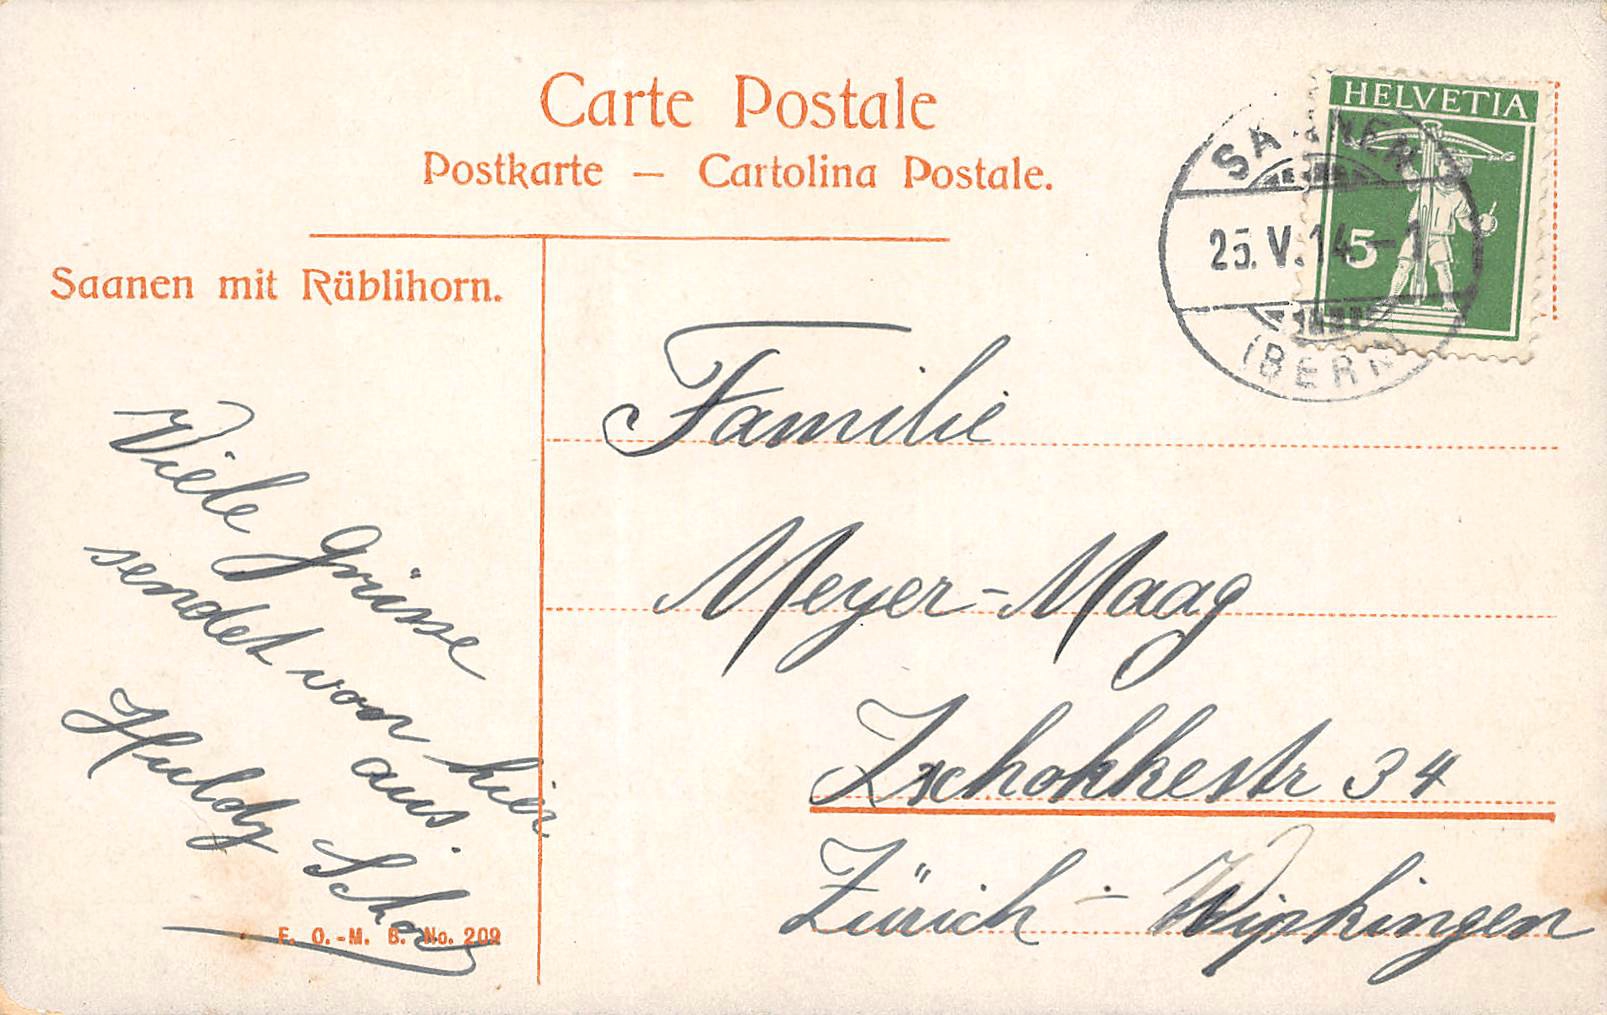 Carte Postale
Postkarte — Cartolina Postale.
HELVETIA
5
SAANEN
25. V. 14 - 1
(BERN)
Saanen mit Rüblihorn.
Viele Grüsse
sendet von hier
aus
Huldy
Familie
Meyer-Maag
Zschokkestr 34
Zürich - Wipkingen
F. O.-M. B. No. 209